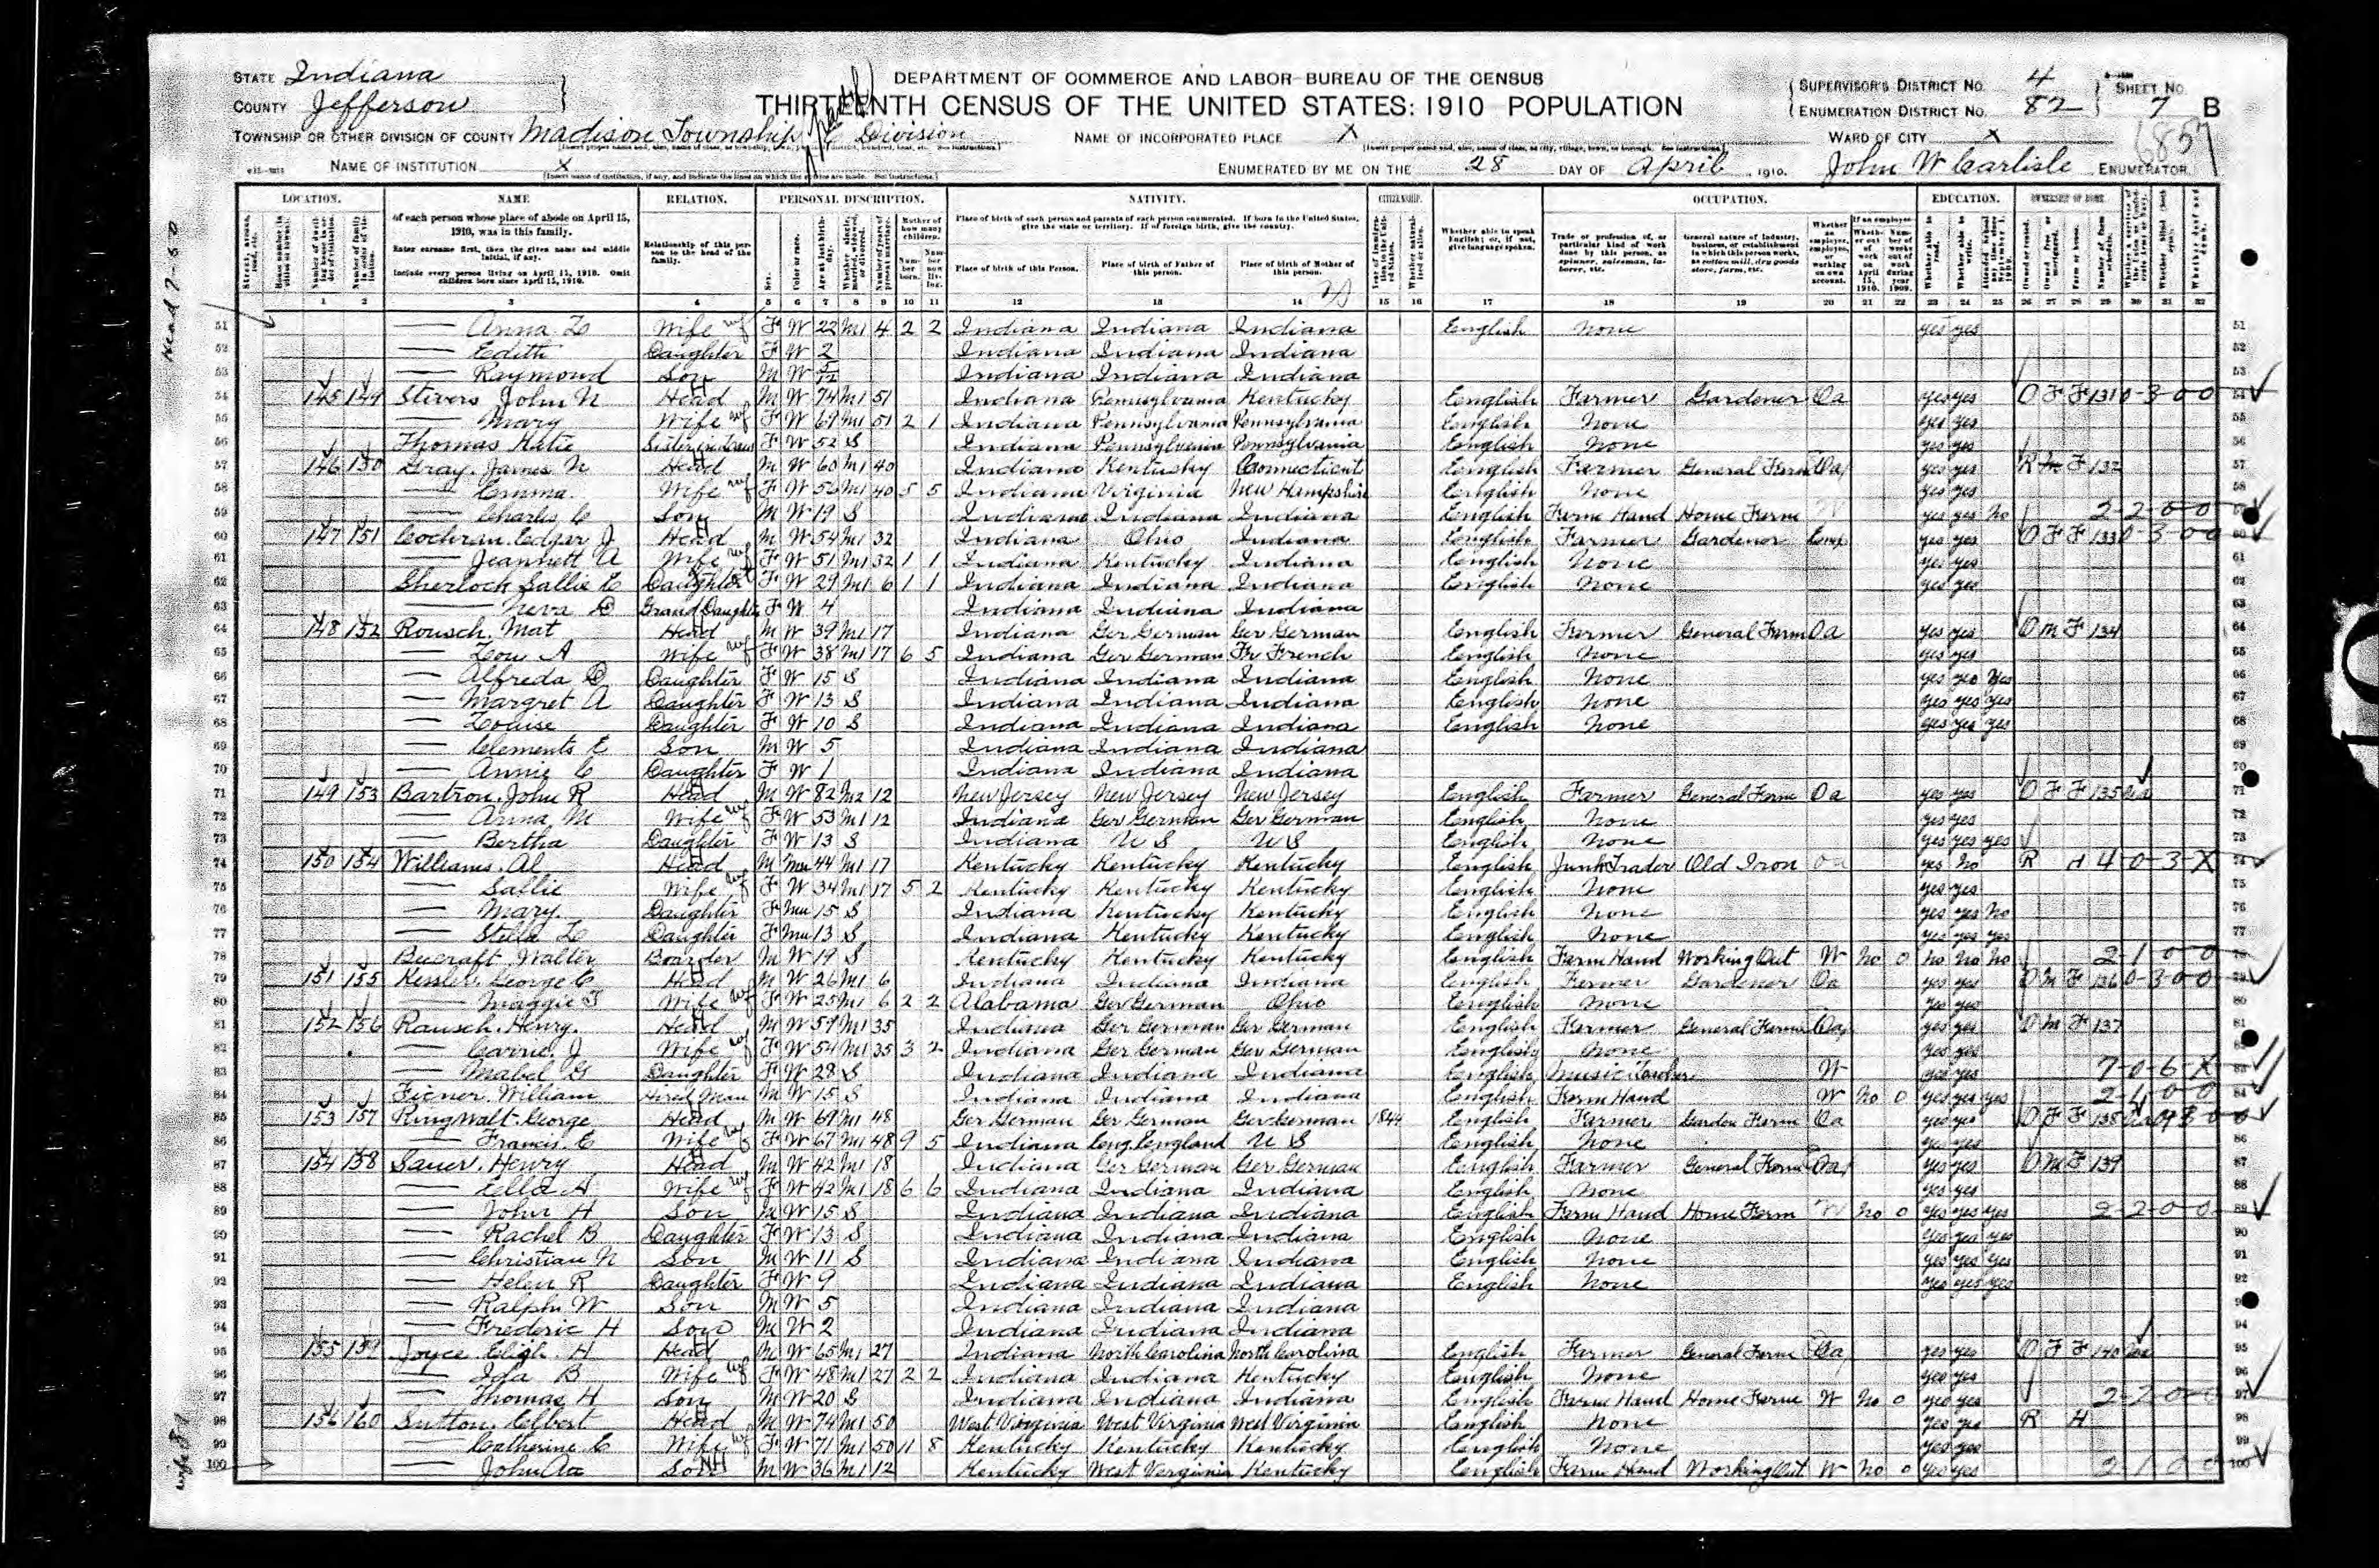 STATE Indiana
COUNTY Jefferson
DEPARTMENT OF COMMERCE AND LABOR-BUREAU OF THE CENSUS
THIRTEENTH CENSUS OF THE UNITED STATES: 1910 POPULATION
SUPERVISOR'S DISTRICT NO. 4
ENUMERATION DISTRICT NO. 82
SHEET NO. 7 B
TOWNSHIP OR OTHER DIVISION OF COUNTY Madison Township Division
NAME OF INCORPORATED PLACE X
WARD OF CITY X
NAME OF INSTITUTION X
ENUMERATED BY ME ON THE 28 DAY OF April, 1910. John W Carlisle ENUMERATOR.
LOCATION. NAME RELATION. PERSONAL DESCRIPTION. NATIVITY. CITIZENSHIP. OCCUPATION. EDUCATION. OWNERSHIP OF HOME.
of each person whose place of abode on April 15, 1910, was in this family.
Enter surname first, then the given name and middle initial, if any.
Include every person living on April 15, 1910. Omit children born since April 15, 1910.
Relationship of this person to the head of the family.
Place of birth of each person and parents of each person enumerated. If born in the United States, give the state or territory. If of foreign birth, give the country.
Place of birth of this Person. Place of birth of Father of this person. Place of birth of Mother of this person.
Whether able to speak English; or, if not, give language spoken.
1 2 3 4 5 6 7 8 9 10 11 12 13 14 15 16 17 18 19 20 21 22 23 24 25 26 27 28 29 30 31 32
51 — Anna L Wife F W 22 M1 4 2 2 Indiana Indiana Indiana English None yes yes 51
52 — Edith Daughter F W 2 Indiana Indiana Indiana 52
53 — Raymond Son M W 5/12 Indiana Indiana Indiana 53
54 145 149 Stivers John N Head M W 74 M1 51 Indiana Pennsylvania Kentucky English Farmer Gardener Oa yes yes O F F 131 0-3-0-0 54
55 — Mary Wife F W 69 M1 51 2 1 Indiana Pennsylvania Pennsylvania English None yes yes 55
56 Thomas Katie Sister in Law F W 52 S Indiana Pennsylvania Pennsylvania English None yes yes 56
57 146 150 Gray, James N Head M W 60 M1 40 Indiana Kentucky Connecticut English Farmer General Farm Oa yes yes R F 132 57
58 — Emma Wife F W 56 M1 40 5 5 Indiana Virginia New Hampshire English None yes yes 58
59 — Charles C Son M W 19 S Indiana Indiana Indiana English Farm Hand Home Farm W yes yes No 2-2-0-0 59
60 147 151 Cochran, Edgar J Head M W 54 M1 32 Indiana Ohio Indiana English Farmer Gardener Emp yes yes O F F 133 0-3-0-0 60
61 — Jeannett A Wife F W 51 M1 32 1 1 Indiana Kentucky Indiana English None yes yes 61
62 Sherlock Sallie C Daughter F W 29 M1 6 1 1 Indiana Indiana Indiana English None yes yes 62
63 — Neva D Grand Daughter F W 4 Indiana Indiana Indiana 63
64 148 152 Rousch, Mat Head M W 39 M1 17 Indiana Ger German Ger German English Farmer General Farm Oa yes yes O M F 134 64
65 — Lou A Wife F W 38 M1 17 6 5 Indiana Ger German Fr French English None yes yes 65
66 — Alfreda D Daughter F W 15 S Indiana Indiana Indiana English None yes yes yes 66
67 — Margret A Daughter F W 13 S Indiana Indiana Indiana English None yes yes yes 67
68 — Louise Daughter F W 10 S Indiana Indiana Indiana English None yes yes yes 68
69 — Clements E Son M W 5 Indiana Indiana Indiana 69
70 — Annie C Daughter F W 1 Indiana Indiana Indiana 70
71 149 153 Bartron, John R Head M W 82 M2 12 New Jersey New Jersey New Jersey English Farmer General Farm Oa yes yes O F F 135 71
72 — Anna M Wife F W 53 M1 12 Indiana Ger German Ger German English None yes yes 72
73 — Bertha Daughter F W 13 S Indiana U S U S English None yes yes yes 73
74 150 154 Williams, Al Head M Mu 44 M1 17 Kentucky Kentucky Kentucky English Junk Trader Old Iron Oa yes No R H 4-0-3-X 74
75 — Sallie Wife F W 34 M1 17 5 2 Kentucky Kentucky Kentucky English None yes yes 75
76 — Mary Daughter F Mu 15 S Indiana Kentucky Kentucky English None yes yes No 76
77 — Stella L Daughter F Mu 13 S Indiana Kentucky Kentucky English None yes yes yes 77
78 Bucraft, Walter Boarder M W 19 S Kentucky Kentucky Kentucky English Farm Hand Working Out W No 0 No No No 2-1-0-0 78
79 151 155 Kessler, George C Head M W 26 M1 6 Indiana Indiana Indiana English Farmer Gardener Oa yes yes O M F 136 0-3-0-0 79
80 — Maggie F Wife F W 25 M1 6 2 2 Alabama Ger German Ohio English None yes yes 80
81 152 156 Rausch, Henry Head M W 59 M1 35 Indiana Ger German Ger German English Farmer General Farm Oa yes yes O M F 137 81
82 — Carrie J Wife F W 54 M1 35 3 2 Indiana Ger German Ger German English None yes yes 82
83 — Mabel G Daughter F W 28 S Indiana Indiana Indiana English Music Teacher W yes yes 7-0-6-X 83
84 Ficner, William Hired Man M W 15 S Indiana Indiana Indiana English Farm Hand W No 0 yes yes yes 2-1-0-0 84
85 153 157 Ringwalt, George Head M W 69 M1 48 Ger German Ger German Ger German 1844 English Farmer Garden Farm Oa yes yes O F F 138 85
86 — Francis, C Wife F W 67 M1 48 9 5 Indiana Eng England U S English None yes yes 86
87 154 158 Sauer, Henry Head M W 42 M1 18 Indiana Ger German Ger German English Farmer General Farm Oa yes yes O M F 139 87
88 — Ella A Wife F W 42 M1 18 6 6 Indiana Indiana Indiana English None yes yes 88
89 — John H Son M W 15 S Indiana Indiana Indiana English Farm Hand Home Farm W No 0 yes yes yes 2-2-0-0 89
90 — Rachel B Daughter F W 13 S Indiana Indiana Indiana English None yes yes yes 90
91 — Christian N Son M W 11 S Indiana Indiana Indiana English None yes yes yes 91
92 — Helen R Daughter F W 9 Indiana Indiana Indiana English None yes yes yes 92
93 — Ralph W Son M W 5 Indiana Indiana Indiana
94 — Frederic H Son M W 2 Indiana Indiana Indiana 94
95 155 159 Joyce, Eligh H Head M W 65 M1 27 Indiana North Carolina North Carolina English Farmer General Farm Oa yes yes O F F 140 95
96 — Ida B Wife F W 48 M1 27 2 2 Indiana Indiana Kentucky English None yes yes 96
97 — Thomas H Son M W 20 S Indiana Indiana Indiana English Farm Hand Home Farm W No 0 yes yes 2-2-0-0 97
98 156 160 Sutton, Elbert Head M W 74 M1 50 West Virginia West Virginia West Virginia English None yes yes R H 98
99 — Catherine C Wife F W 71 M1 50 11 8 Kentucky Kentucky Kentucky English None yes yes 99
100 — John Aa Son M W 36 M1 12 Kentucky West Virginia Kentucky English Farm Hand Working Out W No 0 yes yes 2-1-0-0 100